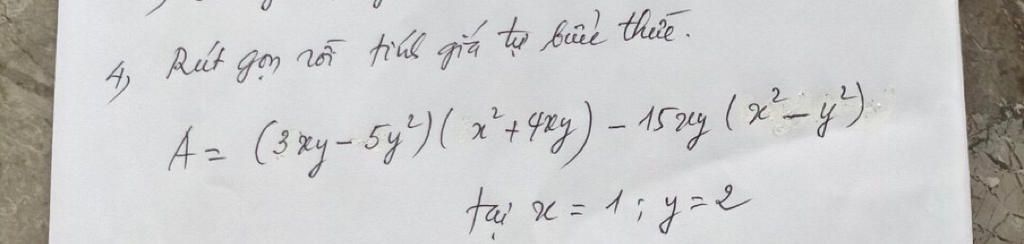 4) Rút gọn rồi tính giá trị biểu thức.
A = (3xy - 5y²)(x² + 4xy) - 15xy (x² - y²)
tại x = 1 ; y = 2